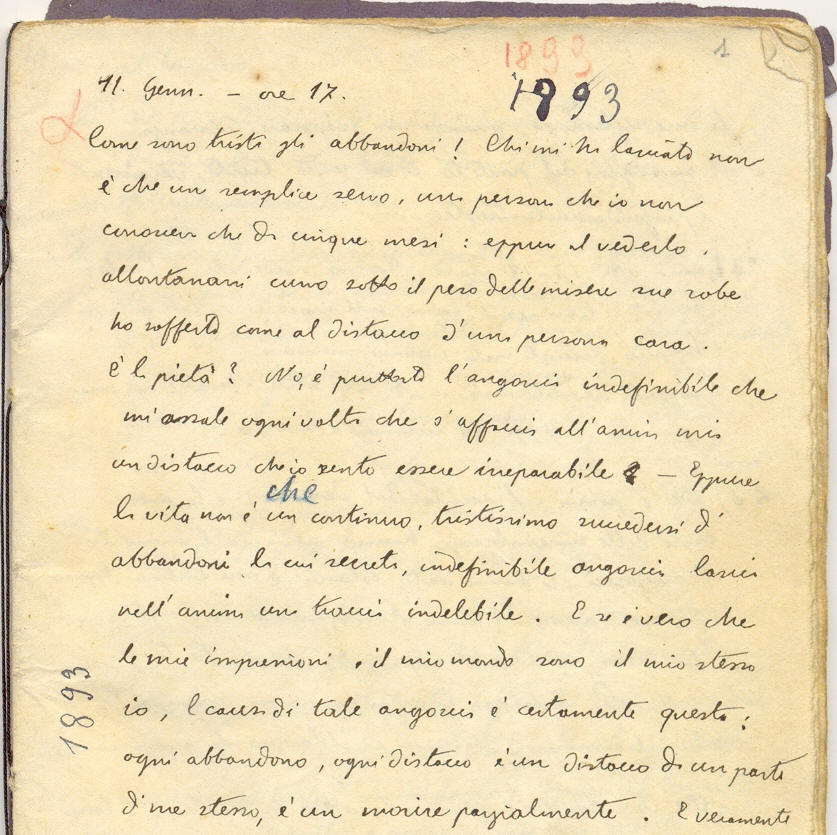 1893
1
11. Genn. - ore 17.
1893
Come sono tristi gli abbandoni! Chi mi ha lasciato non
è che un semplice servo, una persona che io non
conosceva che da cinque mesi: eppur al vederlo
allontanarsi curvo sotto il peso delle misere sue robe
ho sofferto come al distacco d'una persona cara.
È la pietà? No, è piuttosto l'angoscia indefinibile che
mi assale ogni volta che s'affaccia all'anima mia
un distacco che io sento essere irreparabile - Eppure
che
la vita non è un continuo, tristissimo succedersi d'
abbandoni la cui secreta, indefinibile angoscia lascia
nell'anima una traccia indelebile. E se è vero che
le mie impressioni e il mio mondo sono il mio stesso
io, la causa di tale angoscia è certamente questa:
ogni abbandono, ogni distacco è un distacco di una parte
di me stesso, è un morire parzialmente. E veramente
1893